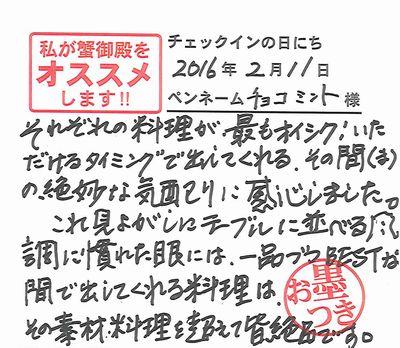 私が蟹御殿を
オススメ
します!!
チェックインの日にち
2016年2月11日
ペンネームチョコミント様
それぞれの料理が、最もオイシク!いた
だけるタイミングで出してくれる。その間(ま)
の絶妙な気配りに感心しました。
これ見よがしにテーブルに並べる風
調に慣れた眼には、一品づつBESTな
間で出してくれる料理は、
その素材、料理を超えて皆絶品です。
お墨つき